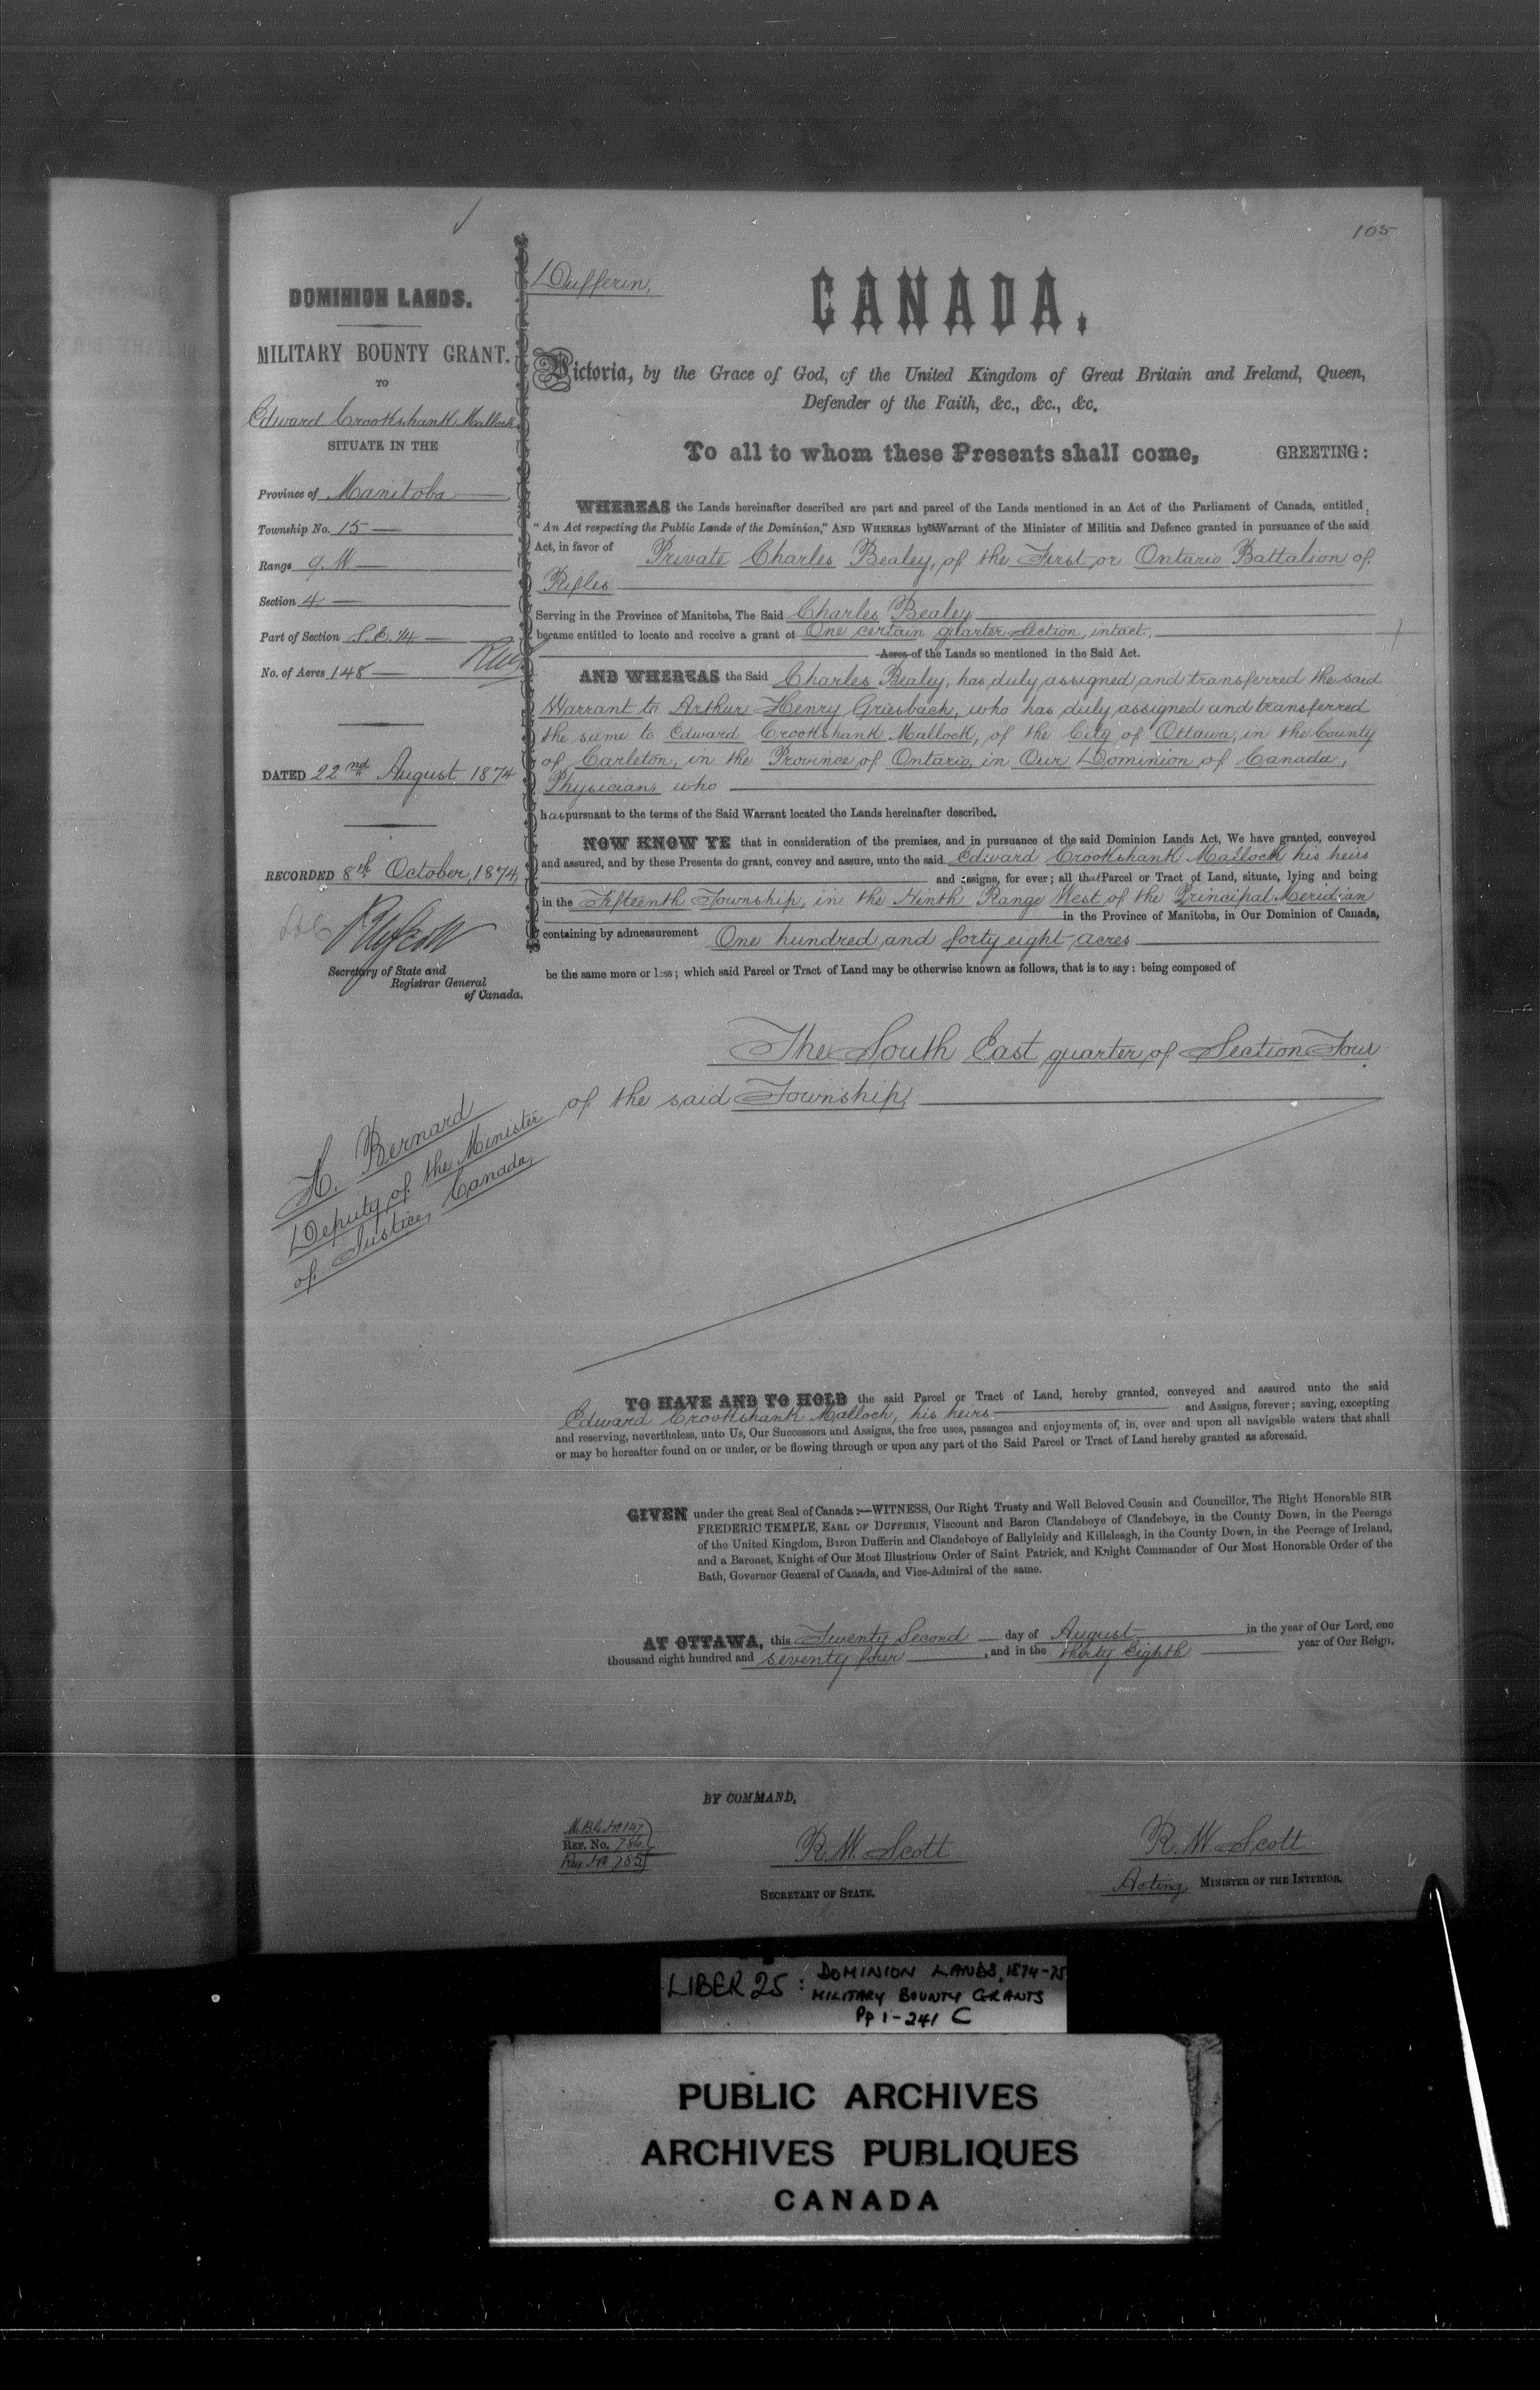 105
DOMINION LANDS.
MILITARY BOUNTY GRANT.
TO
Edward Crookshank Malloch
SITUATE IN THE
Province of Manitoba
Township No. 15
Range 9. W
Section 4
Part of Section S.E. 1/4
No. of Acres 148
DATED 22nd August 1874
RECORDED 8th October, 1874,
RWScott
Secretary of State and
Registrar General
of Canada.
Dufferin,
CANADA.
Victoria, by the Grace of God, of the United Kingdom of Great Britain and Ireland, Queen,
Defender of the Faith, &c., &c., &c.
To all to whom these Presents shall come, GREETING:
WHEREAS the Lands hereinafter described are part and parcel of the Lands mentioned in an Act of the Parliament of Canada, entitled,
"An Act respecting the Public Lands of the Dominion," AND WHEREAS by the Warrant of the Minister of Militia and Defence granted in pursuance of the said
Act, in favor of Private Charles Bealey, of the First or Ontario Battalion of
Rifles
Serving in the Province of Manitoba, The Said Charles Bealey
became entitled to locate and receive a grant of One certain quarter section, intact,
Acres of the Lands so mentioned in the Said Act.
AND WHEREAS the Said Charles Bealey, has duly assigned and transferred the said
Warrant to Arthur Henry Griesbach, who has duly assigned and transferred
the same to Edward Crookshank Malloch, of the City of Ottawa, in the County
of Carleton, in the Province of Ontario, in Our Dominion of Canada,
Physician, who
has pursuant to the terms of the Said Warrant located the Lands hereinafter described.
NOW KNOW YE that in consideration of the premises, and in pursuance of the said Dominion Lands Act, We have granted, conveyed
and assured, and by these Presents do grant, convey and assure, unto the said Edward Crookshank Malloch his heirs
and assigns, for ever; all that Parcel or Tract of Land, situate, lying and being
in the Fifteenth Township, in the Ninth Range West of the Principal Meridian
in the Province of Manitoba, in Our Dominion of Canada,
containing by admeasurement One hundred and forty eight acres
be the same more or less; which said Parcel or Tract of Land may be otherwise known as follows, that is to say: being composed of
The South East quarter of Section Four
of the said Township,
H. Bernard
Deputy of the Minister
of Justice, Canada,
TO HAVE AND TO HOLD the said Parcel or Tract of Land, hereby granted, conveyed and assured unto the said
Edward Crookshank Malloch, his heirs and Assigns, forever; saving, excepting
and reserving, nevertheless, unto Us, Our Successors and Assigns, the free uses, passages and enjoyments of, in, over and upon all navigable waters that shall
or may be hereafter found on or under, or be flowing through or upon any part of the Said Parcel or Tract of Land hereby granted as aforesaid.
GIVEN under the great Seal of Canada:—WITNESS, Our Right Trusty and Well Beloved Cousin and Councillor, The Right Honorable SIR
FREDERIC TEMPLE, EARL OF DUFFERIN, Viscount and Baron Clandeboye of Clandeboye, in the County Down, in the Peerage
of the United Kingdom, Baron Dufferin and Clandeboye of Ballyleidy and Killeleagh, in the County Down, in the Peerage of Ireland,
and a Baronet, Knight of Our Most Illustrious Order of Saint Patrick, and Knight Commander of Our Most Honorable Order of the
Bath, Governor General of Canada, and Vice-Admiral of the same.
AT OTTAWA, this Twenty Second day of August in the year of Our Lord, one
thousand eight hundred and seventy four, and in the thirty Eighth year of Our Reign.
BY COMMAND,
M.B.G. No 147
REF. No. 786.
Reg. No 785
R. W. Scott
SECRETARY OF STATE.
R. W. Scott
Acting MINISTER OF THE INTERIOR.
LIBER 25: DOMINION LANDS, 1874-75
MILITARY BOUNTY GRANTS
Pp 1-241 C
PUBLIC ARCHIVES
ARCHIVES PUBLIQUES
CANADA